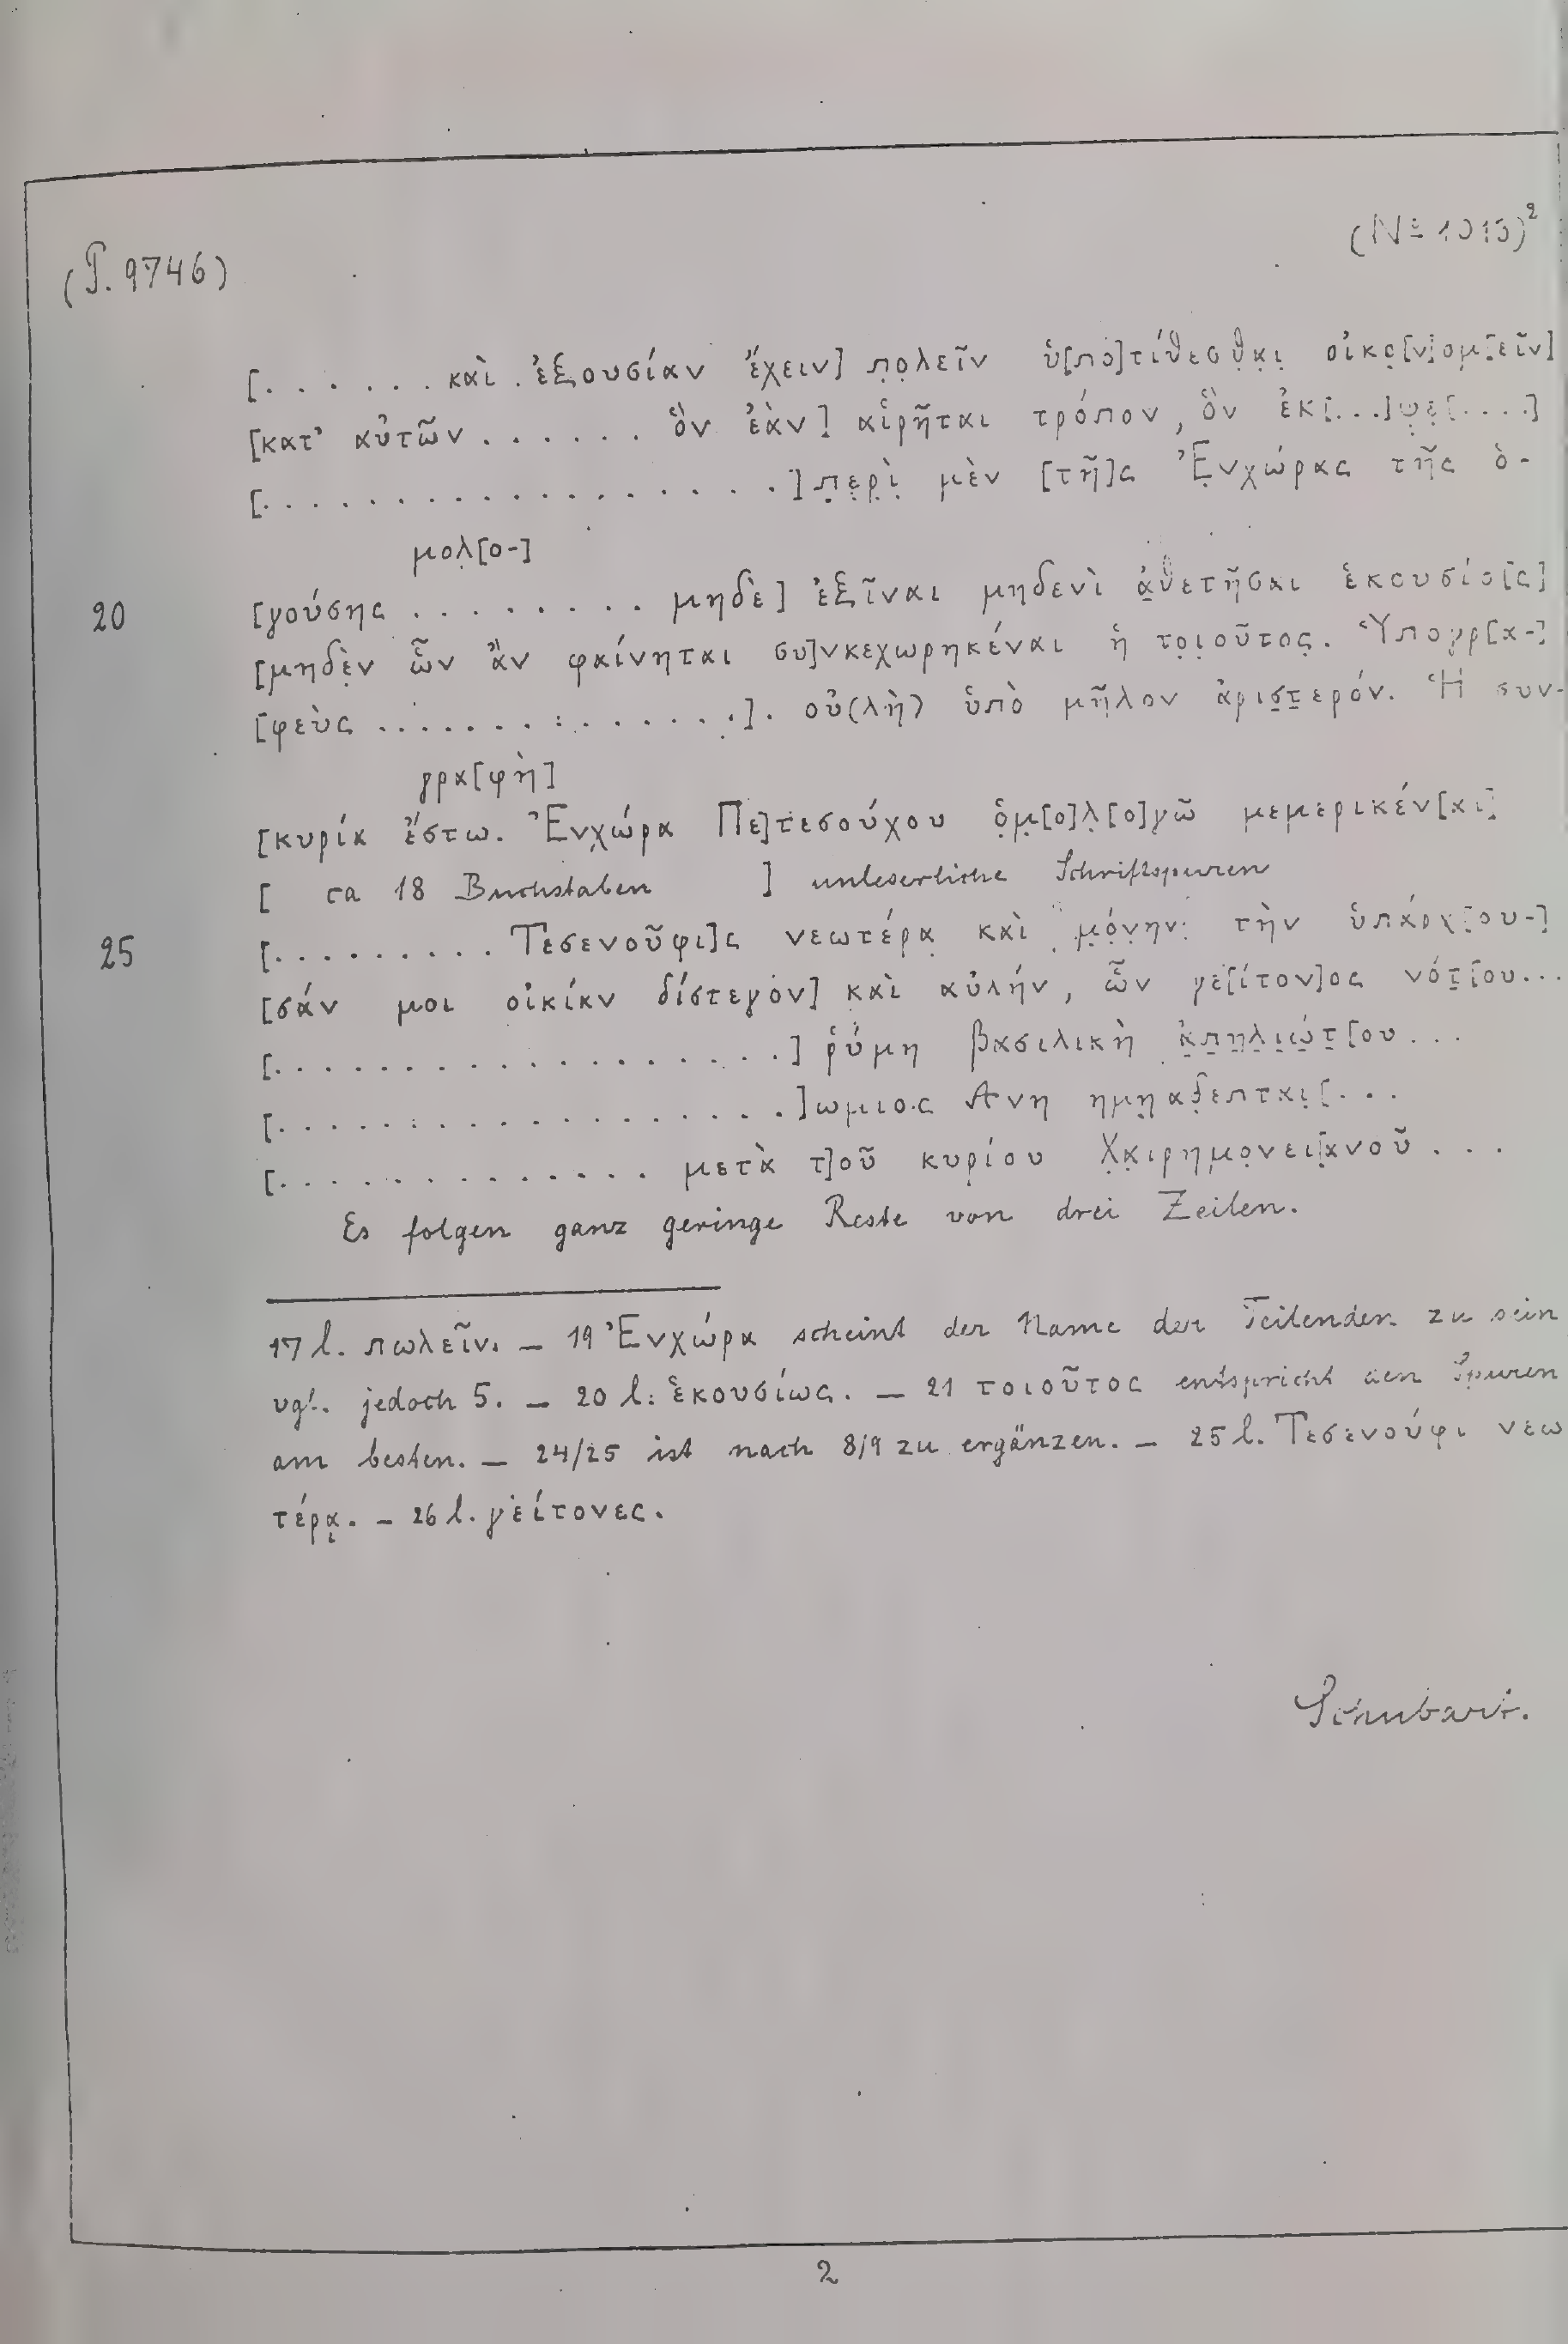 (P. 9746)
(№ 1013)²
[. . . . . . καὶ ἐξουσίαν ἔχειν] π̣ο̣λεῖν ὑ[πο]τίθεσθ̣α̣ι̣ οἰκο̣[ν]ομ[εῖν]
[κατ' αὐτῶν . . . . . . ὃν ἐὰν] αἱρῆται τρόπον, ὃν ἐκ[...]ψ̣ε̣[....]
[. . . . . . . . . . . . . . . . . .]π̣ε̣ρ̣ὶ̣ μὲν [τῆ]ς Ἐ̣νχώρας τῆς ὁ-
μολ̣[ο-]
20 [γούσης . . . . . . . . . μηδὲ] ἐξῖναι μηδενὶ ἀ̣θετῆσαι ἑκουσίο[ς]
[μηδὲν ὧν ἂν φαίνηται συ]νκεχωρηκέναι ἡ το̣ι̣οῦτος̣. Ὑπογρ[α-]
[φεὺς . . . . . . . . . . . . . .]. οὐ(λὴ) ὑπὸ μῆλον ἀρισ̣τ̣ερόν. Ἡ συν-
γρα[φὴ]
[κυρία ἔστω. Ἐνχώρα Πε]τεσούχου ὁ̣μ̣[ο]λ̣[ο]γῶ μεμερικέν[αι]
[ ca 18 Buchstaben ] unleserliche Schriftspuren
25 [. . . . . . . . . Τεσενοῦφι]ς νεωτέρα̣ καὶ μ̣ό̣ν̣ην̣ τὴν ὑπάρχ[ου-]
[σάν μοι οἰκίαν δίστεγον] καὶ αὐλήν, ὧν γε[ίτον]ος νότ̣[ου...
[. . . . . . . . . . . . . . . . .] ῥύμη βασιλικὴ ἀ̣π̣η̣λ̣ι̣ώ̣τ̣[ου . . .
[. . . . . . . . . . . . . . . . .]ωμιο.ς Ανη ημη̣αδ̣επται̣[. . .
[. . . . . . . . . . . . . μετὰ τ]οῦ κυρίου Χ̣α̣ιρημο̣νει̣[ανοῦ . . .
Es folgen ganz geringe Reste von drei Zeilen.
17 l. πωλεῖν. — 19 Ἐνχώρα scheint der Name der Teilenden zu sein
vgl. jedoch 5. — 20 l. ἑκουσίως. — 21 τοιοῦτος entspricht den Spuren
am besten. — 24/25 ist nach 8/9 zu ergänzen. — 25 l. Τεσενούφι νεω
τέρᾳ. — 26 l. γείτονες.
Schubart.
2